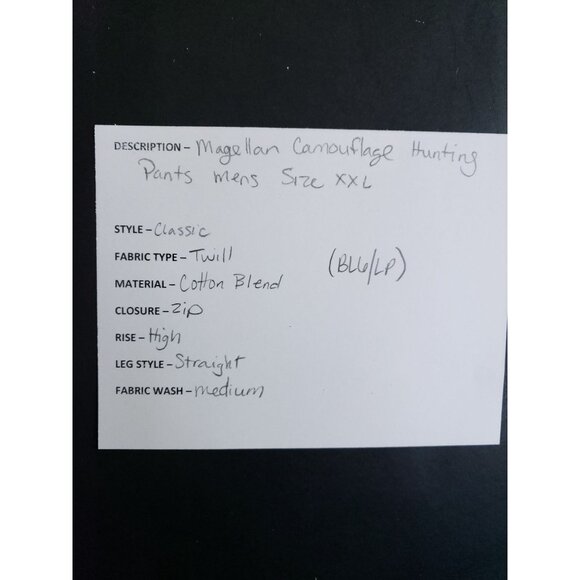 DESCRIPTION – Magellan Camouflage Hunting
Pants mens Size XXL
STYLE – Classic
FABRIC TYPE – Twill
(BL6/LP)
MATERIAL – Cotton Blend
CLOSURE – Zip
RISE – High
LEG STYLE – Straight
FABRIC WASH – medium